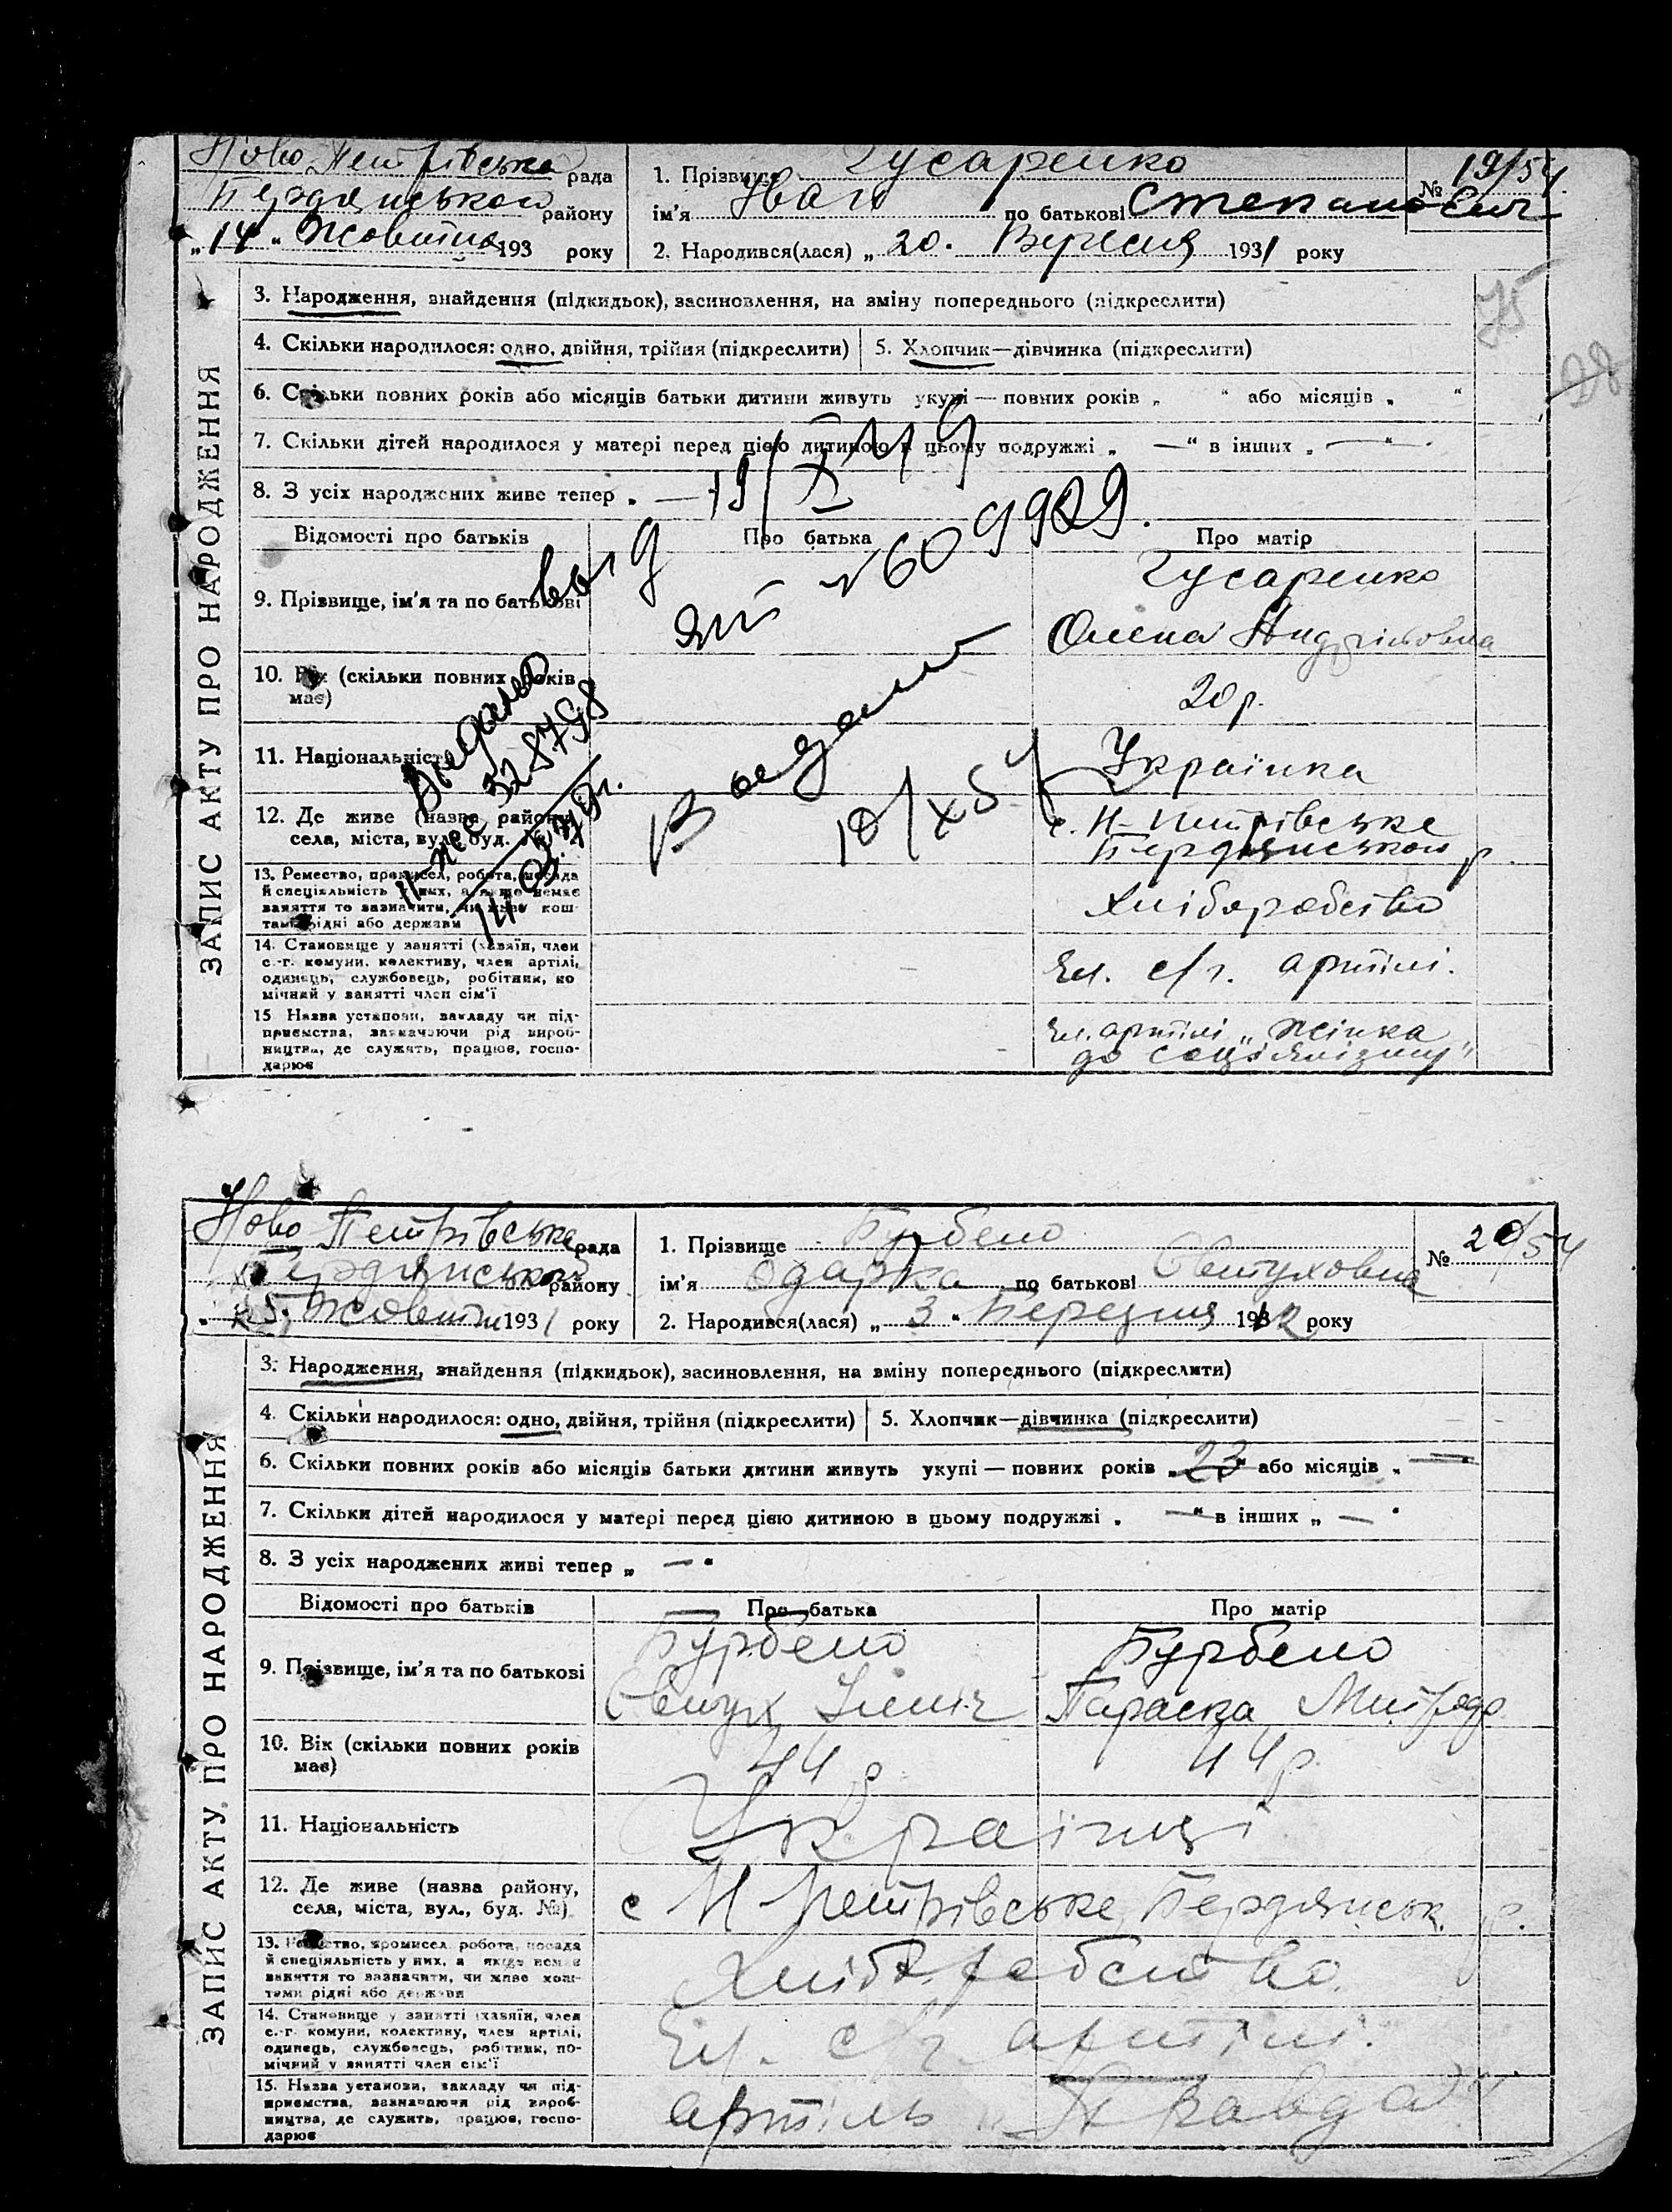 Ново Петрівська рада
Бердянської району
„14„ Жовтня 193 року
1. Прізвище Гусаренко
ім'я Іван по батькові Степанович
№ 19/54.
2. Народився(лася) „20. Вересня 1931 року
ЗАПИС АКТУ ПРО НАРОДЖЕННЯ
3. Народження, знайдення (підкидьок), засиновлення, на зміну попереднього (підкреслити)
75
4. Скільки народилося: одно, двійня, трійня (підкреслити) 5. Хлопчик—дівчинка (підкреслити)
6. Скільки повних років або місяців батьки дитини живуть укупі — повних років „ “ або місяців „ “
7. Скільки дітей народилося у матері перед цією дитиною в цьому подружжі „ —“ в інших „ —“
8. З усіх народжених живе тепер „ —
Відомості про батьків Про батька Про матір
9. Прізвище, ім'я та по батькові
Гусаренко
Олена
10. Вік (скільки повних років має)
20 р.
11. Національність
Українка
12. Де живе (назва району, села, міста, вул., буд. №)
с. Н-Петрівське
Бердянського р.
13. Ремество, промисел, робота, посада
й спеціальність у них, а якщо немає
заняття то зазначити, чи живе кош-
тами рідні або держави
Хліборобство
14. Становище у занятті (хазяїн, член
с.-г. комуни, колективу, член артілі,
одинець, службовець, робітник, по
мічний у занятті член сім'ї
Чл. с/г. артілі.
15 Назва установи, закладу чи під-
приємства, зазначаючи рід вироб-
ництва, де служить, працює, госпо-
дарює
Чл. артілі „Жінка
до соціялізму"
19/X 49
ЯП № 609929.
Выдано
10/X 54
328798
Ново Петрівська рада
Бердянської району
„25. Жовтня 1931 року
1. Прізвище Бурбело
ім'я Одарка по батькові Євтуховна
№ 20/54
2. Народився(лася) „3“ Березня 1912 року
ЗАПИС АКТУ ПРО НАРОДЖЕННЯ
3. Народження, знайдення (підкидьок), засиновлення, на зміну попереднього (підкреслити)
4. Скільки народилося: одно, двійня, трійня (підкреслити) 5. Хлопчик—дівчинка (підкреслити)
6. Скільки повних років або місяців батьки дитини живуть укупі — повних років „23“ або місяців „—“
7. Скільки дітей народилося у матері перед цією дитиною в цьому подружжі „ —“ в інших „ — “
8. З усіх народжених живі тепер „ —“
Відомості про батьків Про батька Про матір
9. Прізвище, ім'я та по батькові
Бурбело Бурбело
Євтух Ілліч Параска Митрофа
10. Вік (скільки повних років має)
44 р. 44 р.
11. Національність
Українці
12. Де живе (назва району, села, міста, вул., буд. №)
с Н Петрівське Бердянськ. р.
13. Ремество, промисел, робота, посада
й спеціальність у них, а якщо немає
заняття то зазначити, чи живе кош-
тами рідні або держави
Хліборобство.
14. Становище у занятті (хазяїн, член
с.-г. комуни, колективу, член артілі,
одинець, службовець, робітник, по-
мічний у занятті член сім'ї
Чл. с/г. артілі.
15. Назва установи, закладу чи під-
приємства, зазначаючи рід вироб-
ництва, де служить, працює, госпо-
дарює
артіль „Правда"